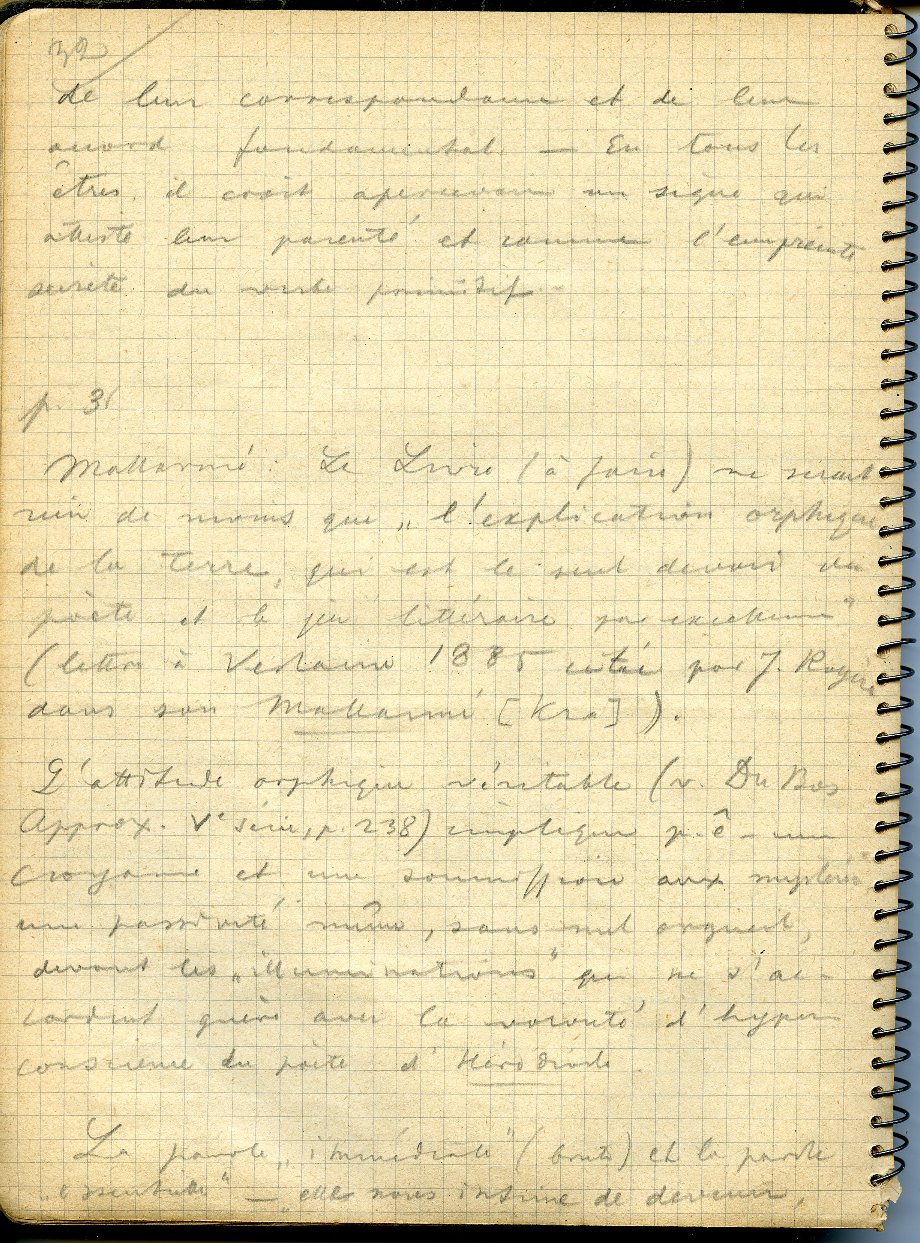 32
de leur correspondance et de leur
accord fondamental. — En tous les
êtres, il croit apercevoir un signe qui
atteste leur parenté et comme l'empreinte
secrète du verbe primitif.
p. 31
Mallarmé : Le Livre (à faire) ne serait
rien de moins que „l'explication orphique
de la terre, qui est le seul devoir du
poète et le jeu littéraire par excellence"
(lettre à Verlaine 1885 citée par J. Royère
dans son Mallarmé [Kra]).
L'attitude orphique véritable (v. Du Bos
Approx. Ve série, p. 238) implique p.-ê - une
croyance et une soumission aux mystères
une passivité même, sans nul orgueil,
devant les „illuminations" qui ne s'ac-
cordent guère avec la volonté d'hyper
conscience du poète d'Hérodiade.
La parole „immédiate" (brute) et la parole
„essentielle" — elles nous intime de devenir,